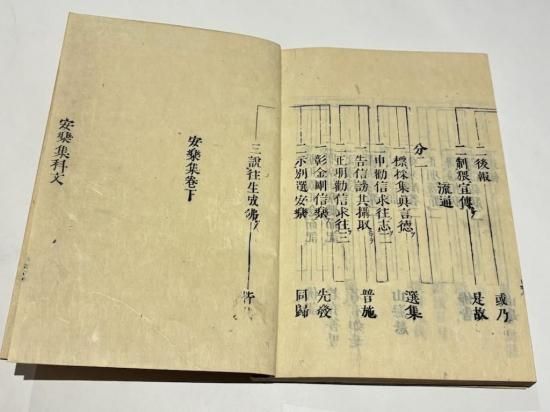 二後報 或乃
二制猥宣傳 是故
流通
分二
一標採集真言德 選集
二申勸信求往志二
一告信謗共攝取 普施
二正明勸信求往三
一彰金剛信樂 先發
二示別選安樂 同歸
三說往生成
安樂集卷下
安樂集科文